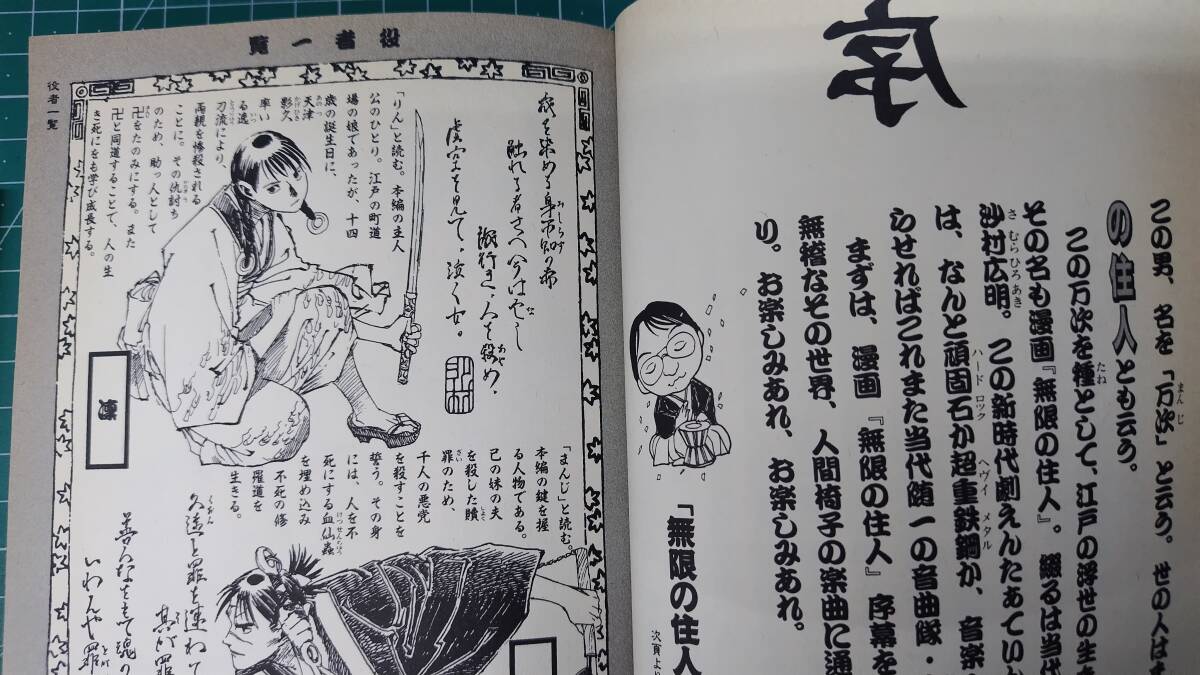 序
この男、名を「万次」と云う。世の人は
まんじ
の住人とも云う。
この万次を種として、江戸の浮世の生
たね
その名も漫画『無限の住人』。綴るは当代
沙村広明。この新時代劇えんたあてい
さむらひろあき
は、なんと頑固石か超重鉄鋼か、音楽
ハードロック ヘヴィメタル
らせればこれまた当代随一の音曲隊・
まずは、漫画『無限の住人』序幕を
無稽なその世界、人間椅子の楽曲に通
り。お楽しみあれ、お楽しみあれ。
「無限の住人
次頁より
役者一覧
役者一覧
触れる者さへ今はなし
人を殺め、
あや
虚空を見て、泣く女。
「りん」と読む。本編の主人
公のひとり。江戸の町道
場の娘であったが、十四
歳の誕生日に、
天津
あのつ
影久
かげひさ
率い
る逸
いつ
刀流により、
とうりゅう
両親を惨殺される
ことに。その仇討ち
かたきう
のため、助っ人として
卍をたのみにする。また
まんじ
卍と同道することで、人の生
き死にをも学び成長する。
凛
「まんじ」と読む。
本編の鍵を握
る人物である。
己の妹の夫
を殺した贖
しょく
罪のため、
ざい
千人の悪党
を殺すことを
誓う。その身
には、人を不
死にする血仙蟲
けっせんちゅう
を埋め込み
不死の修
羅道を
生きる。
久遠と罪を連ねて
くおん
いわんや罪